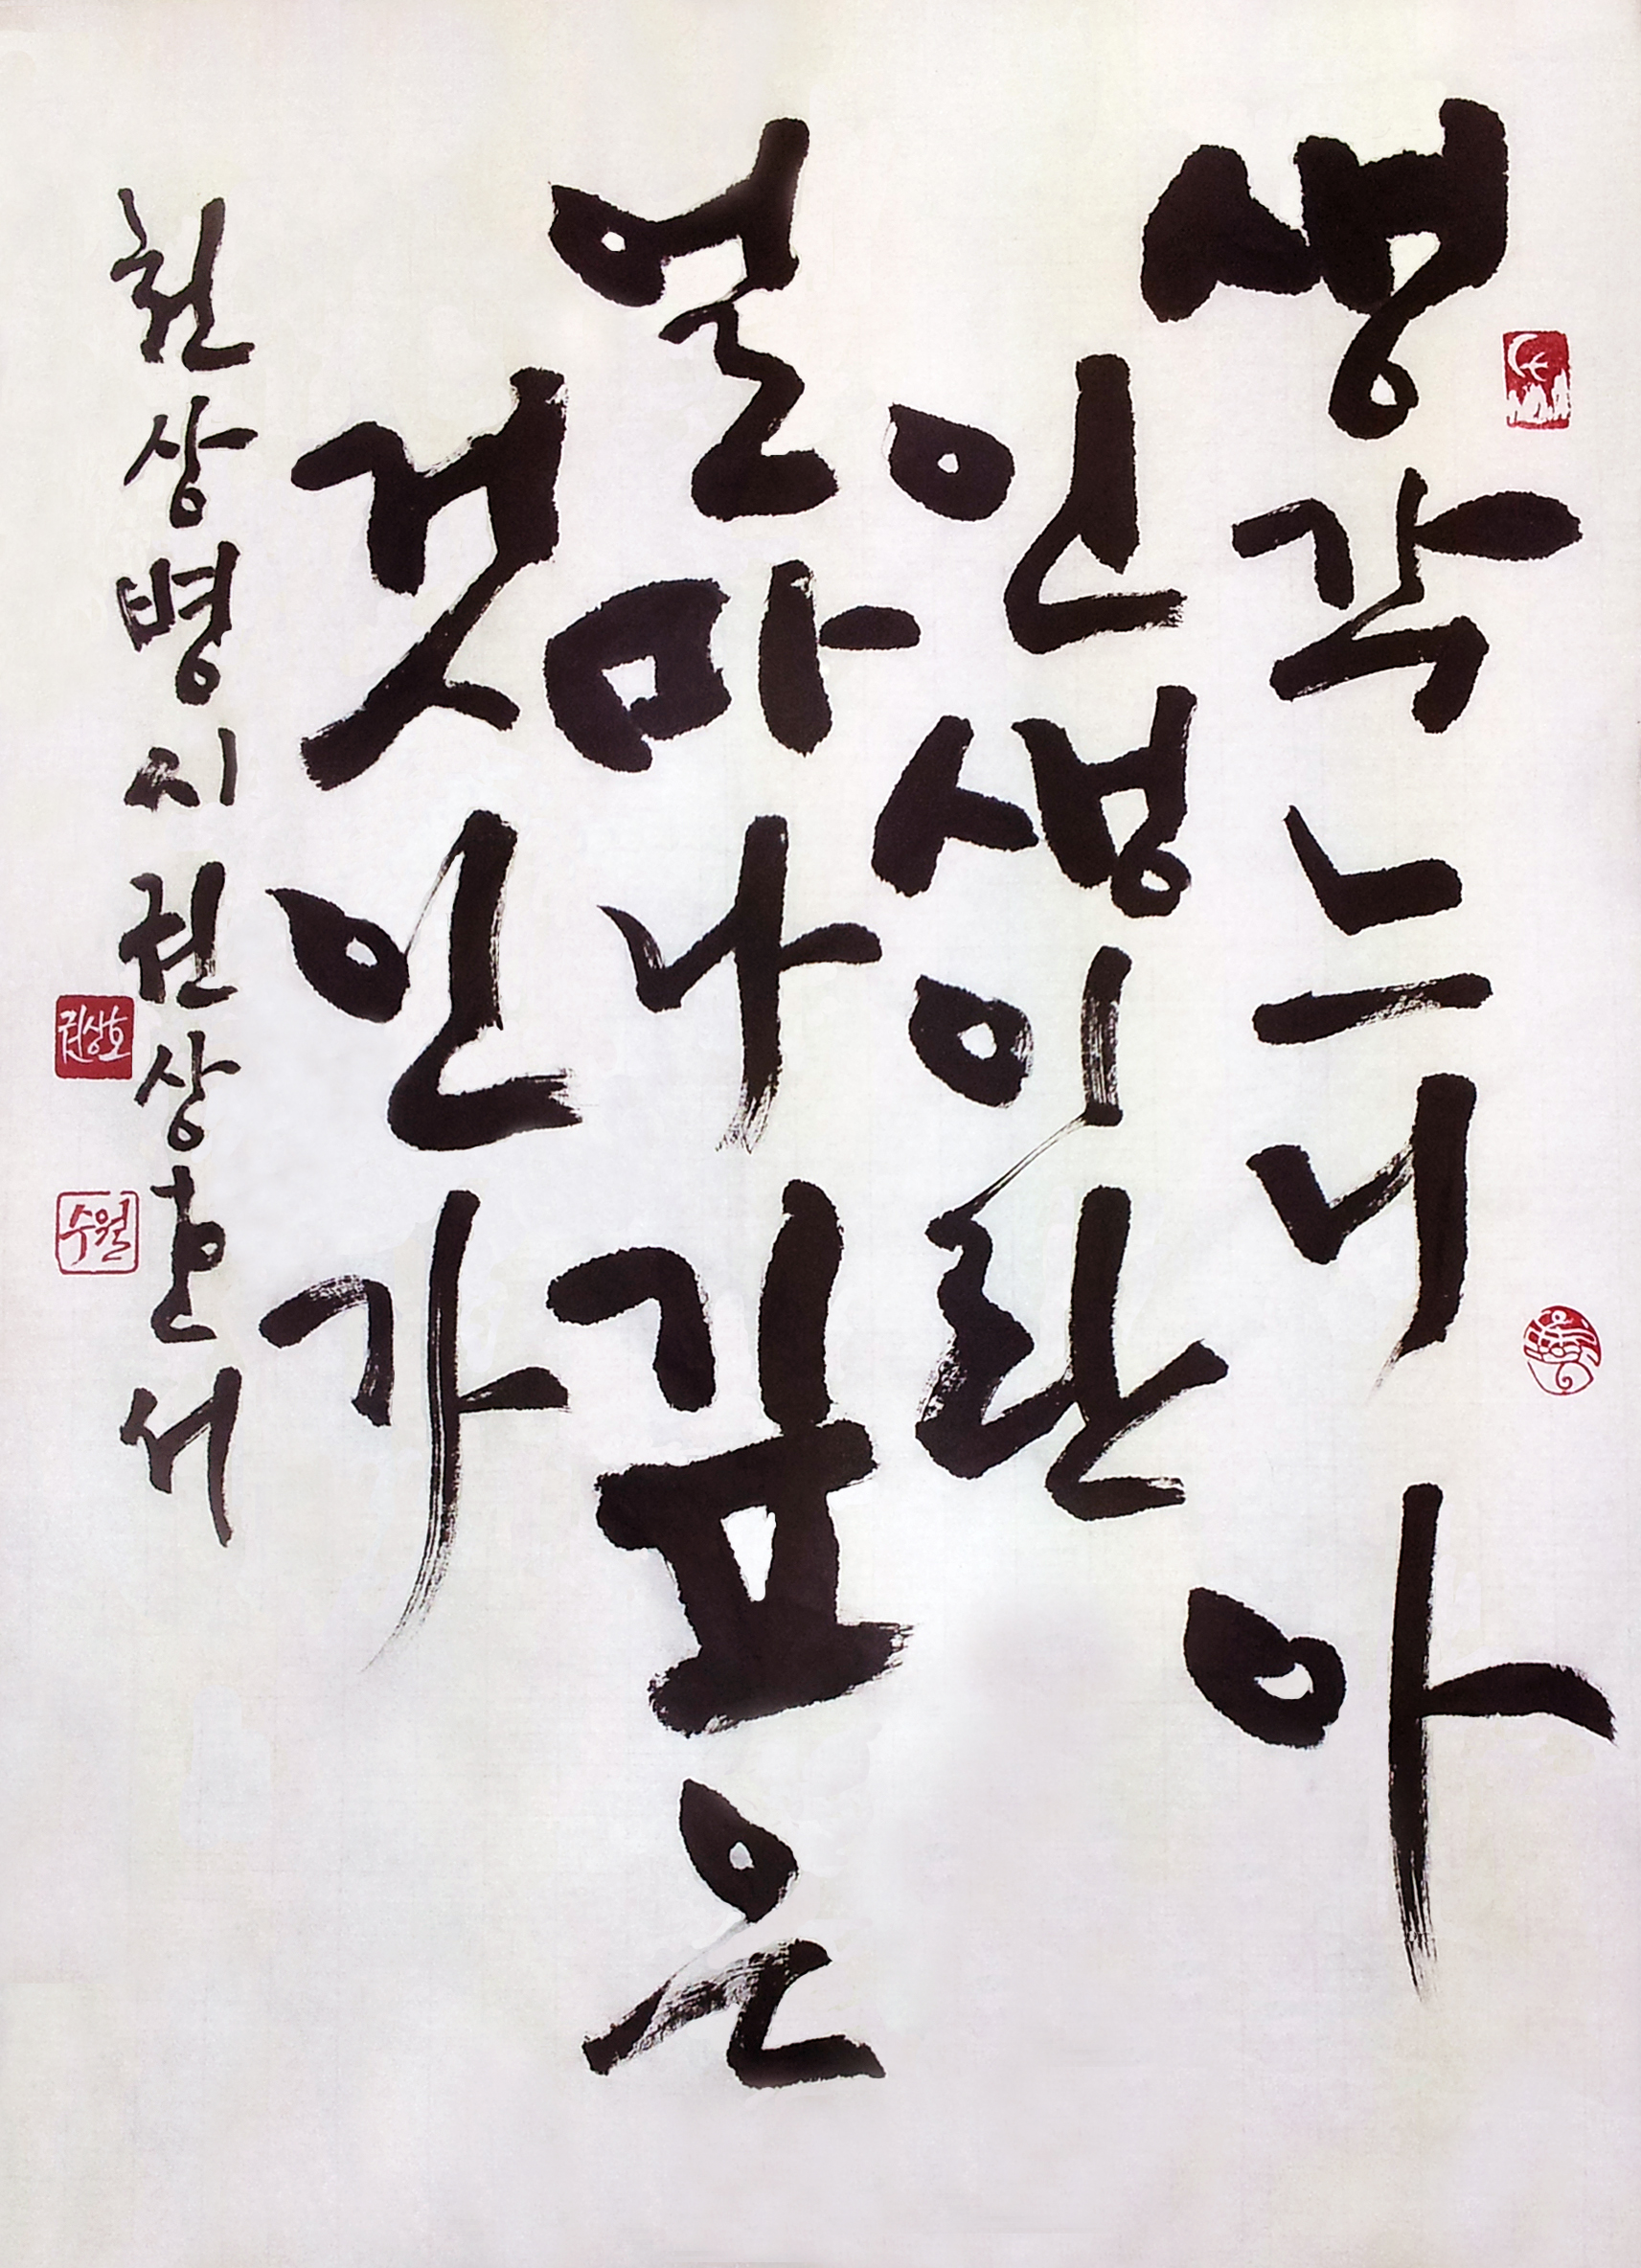 생각느니 아
인생이란
얼마나 깊은
것인가
천상병 시 권상호 서
권상호
수월